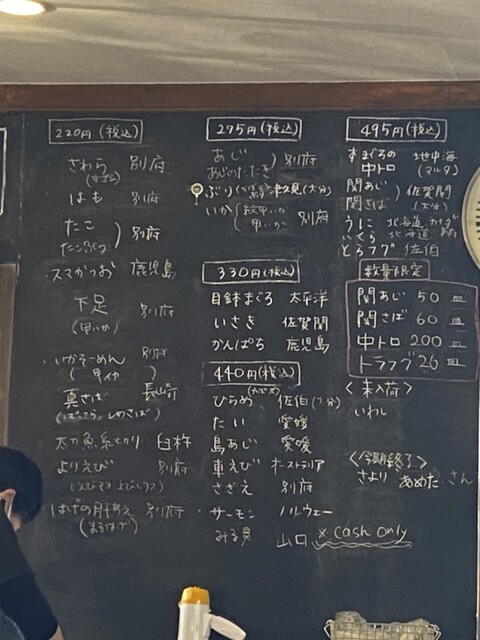 220円(税込)
さわら 別府
はも 別府
たこ
別府
スマがつお 鹿児島
下足 別府
(甲いか)
いかそーめん 別府
真さば 長崎
太刀魚 臼杵
よりえび 別府
はげの肝あえ 別府
275円(税込)
あじ
あじのたたき
別府
ぶり 津久見(大分)
いか 甲いか 別府
330円(税込)
目鉢まぐろ 太平洋
いさき 佐賀関
かんぱち 鹿児島
440円(税込)
ひらめ 佐伯
たい 愛媛
島あじ 愛媛
車えび オーストラリア
さざえ 別府
サーモン ノルウェー
みる貝 山口
※cash only
495円(税込)
まぐろの 地中海
中トロ (マルタ)
関あじ
関さば
佐賀関
(大分)
うに 北海道 カナダ
いくら 北海道
とらフグ 佐伯
数量限定
関あじ 50 皿
関さば 60 皿
中トロ 200 皿
トラフグ 20 皿
<未入荷>
いわし
<今期終了>
さより あめた さん